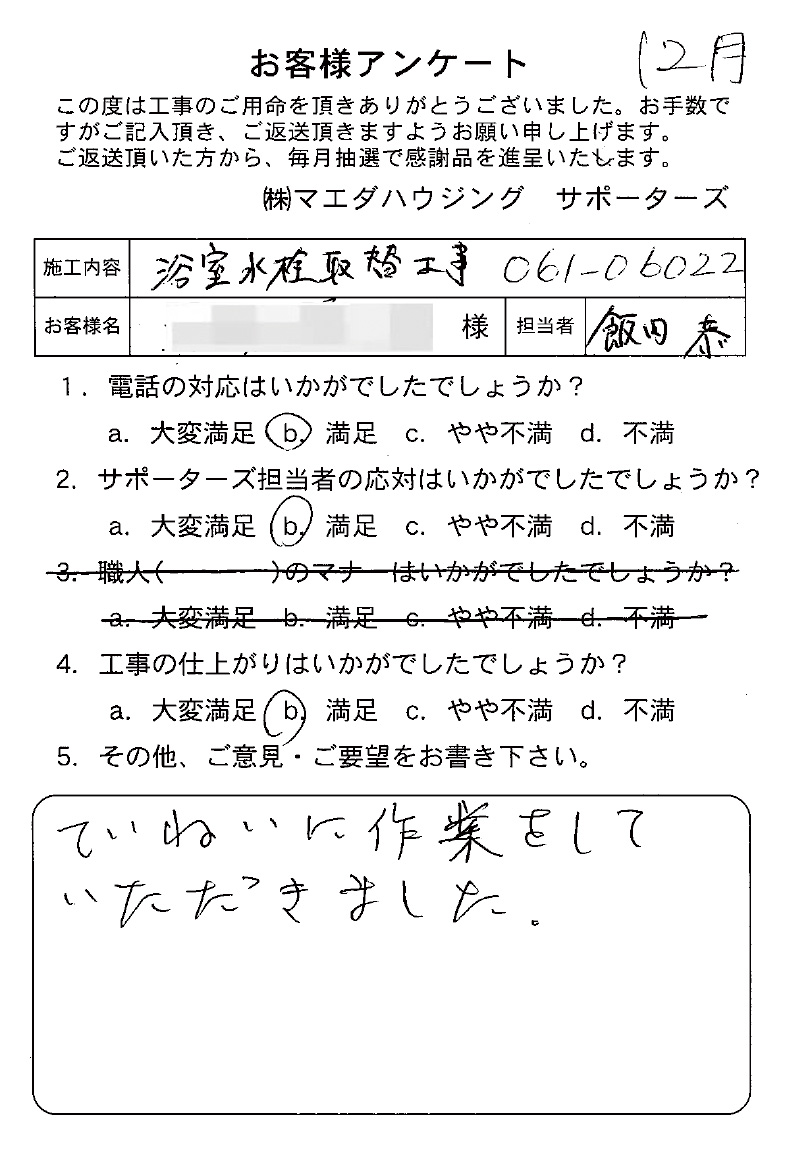 お客様アンケート 12月
この度は工事のご用命を頂きありがとうございました。お手数で
すがご記入頂き、ご返送頂きますようお願い申し上げます。
ご返送頂いた方から、毎月抽選で感謝品を進呈いたします。
㈱マエダハウジング サポーターズ
施工内容 浴室水栓取替工事 061-06022
お客様名 様 担当者 飯田 恭
1. 電話の対応はいかがでしたでしょうか？
a. 大変満足 b. 満足 c. やや不満 d. 不満
2. サポーターズ担当者の応対はいかがでしたでしょうか？
a. 大変満足 b. 満足 c. やや不満 d. 不満
3. 職人( )のマナーはいかがでしたでしょうか？
a. 大変満足 b. 満足 c. やや不満 d. 不満
4. 工事の仕上がりはいかがでしたでしょうか？
a. 大変満足 b. 満足 c. やや不満 d. 不満
5. その他、ご意見・ご要望をお書き下さい。
ていねいに作業をして
いただきました。